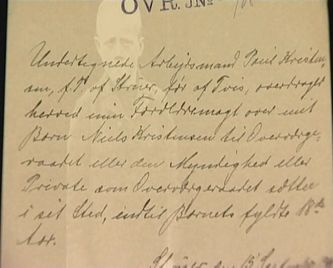 OVR. JNo
Undertegnede Arbejdsmand Poul Kristen-
sen, f. T. af Struer, før af Tvis, overdrager
herved min Forældremagt over mit
Barn Niels Kristensen til Overværge-
raadet eller den Myndighed eller
Private som Overværgeraadet sætter
i sit Sted, indtil Barnets fyldte 18de
Aar.